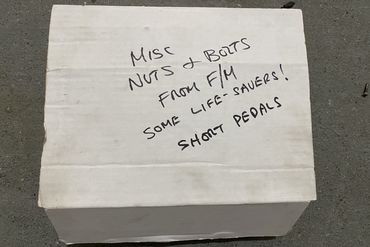 MISC
NUTS & BOLTS
FROM F/M
SOME LIFE-SAVERS!
SHORT PEDALS